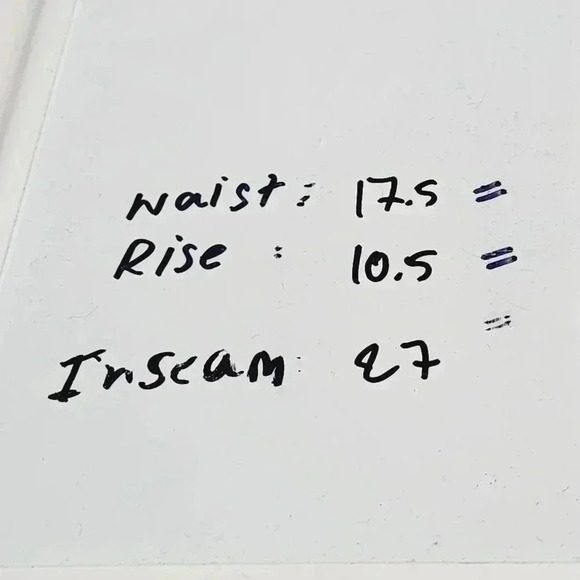 Waist: 17.5 =
Rise : 10.5 =
Inseam: 27 =